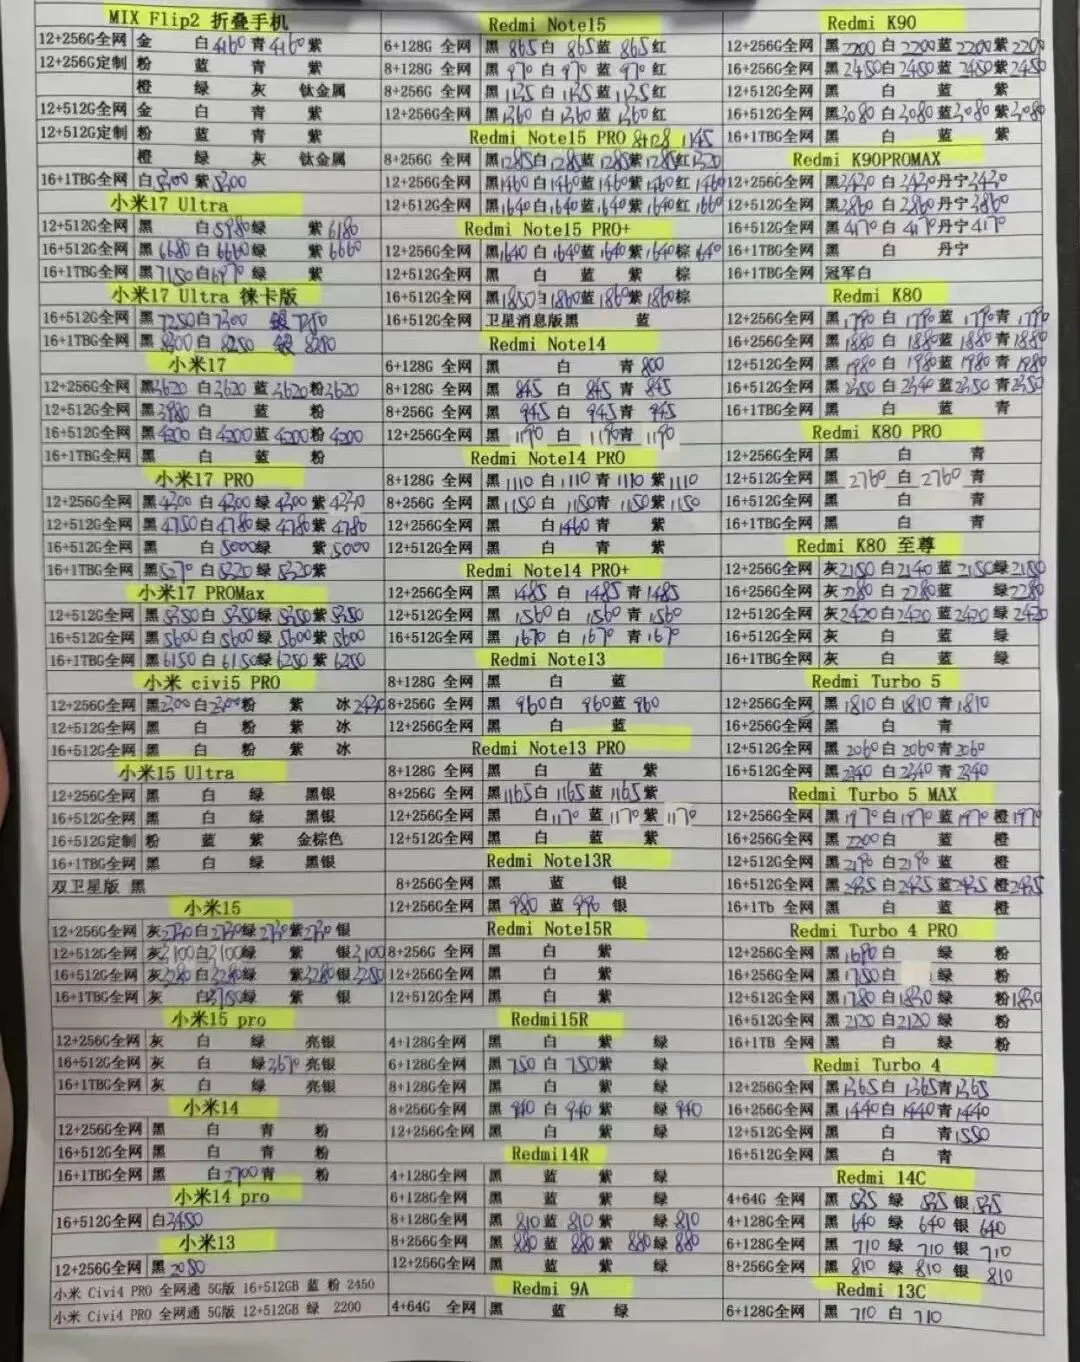 MIX Flip2 折叠手机
12+256G全网 金 白4160青4160紫
12+256G定制 粉 蓝 青 紫
橙 绿 灰 钛金属
12+512G全网 金 白 青 紫
12+512G定制 粉 蓝 青 紫
橙 绿 灰 钛金属
16+1TBG全网 白5300紫5300
小米17 Ultra
12+512G全网 黑 白5980绿 紫6180
16+512G全网 黑6680白6660绿 紫6660
16+1TBG全网 黑7150白6970绿 紫
小米17 Ultra 徕卡版
16+512G全网 黑7250白7300
16+1TBG全网 白8250
小米17
12+256G全网 黑3620 白3620 蓝3620粉3620
12+512G全网 黑3980白 蓝 粉
16+512G全网 黑4200 白4200蓝4200粉4200
16+1TBG全网 黑 白 蓝 粉
小米17 PRO
12+256G全网 黑4300白4300绿4300紫4330
12+512G全网 黑4750白4780绿4780紫4780
16+512G全网 黑 白5000绿 紫5000
16+1TBG全网 黑5270白5320绿5320紫
小米17 PROMax
12+512G全网 黑5350白5350绿5350紫5350
16+512G全网 黑5600白5600绿5600紫5600
16+1TBG全网 黑6150白6150绿6250紫6250
小米 civi5 PRO
12+256G全网 黑2300白2300粉 紫 冰2430
12+512G全网 黑 白 粉 紫 冰
16+512G全网 黑 白 粉 紫 冰
小米15 Ultra
12+256G全网 黑 白 绿 黑银
16+512G全网 黑 白 绿 黑银
16+512G定制 粉 蓝 紫 金棕色
16+1TBG全网 黑 白 绿 黑银
双卫星版 黑
小米15
12+256G全网 灰2730白2730绿2730紫2730银
12+512G全网 灰3100白3100绿 紫 银3100
16+512G全网 灰3280白3280绿 紫3280银3280
16+1TBG全网 灰 白3750绿 紫 银
小米15 pro
12+256G全网 灰 白 绿 亮银
16+512G全网 灰 白 绿3670亮银
16+1TBG全网 灰 白 绿 亮银
小米14
12+256G全网 黑 白 青 粉
16+512G全网 黑 白 青 粉
16+1TBG全网 黑 白2700青 粉
小米14 pro
16+512G全网 白3450
小米13
12+256G全网 黑2050
小米 Civi4 PRO 全网通 5G版 16+512GB 蓝 粉 2450
小米 Civi4 PRO 全网通 5G版 12+512GB 绿 2200
Redmi Note15
6+128G 全网 黑865白865蓝865红
8+128G 全网 黑970白970蓝970红
8+256G 全网 黑1135白1135蓝1135红
12+256G全网 黑1360白1360蓝1360红
Redmi Note15 PRO 8+128 1145
8+256G 全网 黑1285白1285蓝1285紫1285红1320
12+256G全网 黑1460白1460蓝1460紫1460红1460
12+512G全网 黑1640白1640蓝1640紫1640红1660
Redmi Note15 PRO+
12+256G全网 黑1640白1640蓝1640紫1640棕1640
12+512G全网 黑 白 蓝 紫 棕
16+512G全网 黑1850白1860蓝1860紫1860棕
16+512G全网 卫星消息版黑 蓝
Redmi Note14
6+128G 全网 黑 白 青800
8+128G 全网 黑845白845青845
8+256G 全网 黑945白945青945
12+256G全网 黑1190白1190青1190
Redmi Note14 PRO
8+128G 全网 黑1110白1110青1110紫1110
8+256G 全网 黑1150白1150青1150紫1150
12+256G全网 黑 白1460青 紫
12+512G全网 黑 白 青 紫
Redmi Note14 PRO+
12+256G全网 黑1485白1485青1485
12+512G全网 黑1560白1560青1560
16+512G全网 黑1670白1670青1670
Redmi Note13
8+128G 全网 黑 白 蓝
8+256G 全网 黑960白960蓝960
12+256G全网 黑 白 蓝
Redmi Note13 PRO
8+128G 全网 黑 白 蓝 紫
8+256G 全网 黑1165白1165蓝1165紫
12+256G全网 黑 白1170蓝1170紫1170
12+512G全网 黑 白 蓝 紫
Redmi Note13R
8+256G全网 黑 蓝 银
12+256G全网 黑980蓝990银
Redmi Note15R
8+256G 全网 黑 白 紫
12+256G全网 黑 白 紫
12+512G全网 黑 白 紫
Redmi15R
4+128G全网 黑 白 紫 绿
6+128G全网 黑750白750紫 绿
8+128G全网 黑 白 紫 绿
8+256G全网 黑940白940紫 绿940
12+256G全网 黑 白 紫 绿
Redmi14R
4+128G全网 黑 蓝 紫 绿
6+128G全网 黑 蓝 紫 绿
8+128G全网 黑810蓝810紫 绿810
8+256G全网 黑880蓝880紫880绿880
12+256G全网 黑 蓝 紫 绿
Redmi 9A
4+64G 全网 黑 蓝 绿
Redmi K90
12+256G全网 黑2200白2200蓝2200紫2200
16+256G全网 黑2450白2450蓝2450紫2450
12+512G全网 黑 白 蓝 紫
16+512G全网 黑3080白3080蓝3080紫3080
16+1TBG全网 黑 白 蓝 紫
Redmi K90PROMAX
12+256G全网 黑3430白3430丹宁3430
12+512G全网 黑3860白3860丹宁3860
16+512G全网 黑4170白4170丹宁4170
16+1TBG全网 黑 白 丹宁
16+1TBG全网 冠军白
Redmi K80
12+256G全网 黑1790白1790蓝1790青1790
16+256G全网 黑1880白1880蓝1880青1880
12+512G全网 黑1980白1980蓝1980青1980
16+512G全网 黑2350白2340蓝2350青2350
16+1TBG全网 黑 白 蓝 青
Redmi K80 PRO
12+256G全网 黑 白 青
12+512G全网 黑2760白2760青
16+512G全网 黑 白 青
16+1TBG全网 黑 白 青
Redmi K80 至尊
12+256G全网 灰2150白2140蓝2150绿2150
16+256G全网 灰2280白2280蓝 绿2280
12+512G全网 灰2420白2420蓝2420绿2420
16+512G全网 灰 白 蓝 绿
16+1TBG全网 灰 白 蓝 绿
Redmi Turbo 5
12+256G全网 黑1810白1810青1810
16+256G全网 黑 白 青
12+512G全网 黑2060白2060青2060
16+512G全网 黑2340白2340青2340
Redmi Turbo 5 MAX
12+256G全网 黑1970白1970蓝1970橙1970
16+256G全网 黑2200白 蓝 橙
12+512G全网 黑2190白2190蓝 橙
16+512G全网 黑2435白2435蓝2435橙2435
16+1Tb 全网 黑 白 蓝 橙
Redmi Turbo 4 PRO
12+256G全网 黑1690白 绿 粉
16+256G全网 黑1750白 绿 粉
12+512G全网 黑1780白1830绿 粉1830
16+512G全网 黑2120白2120绿 粉
16+1TB 全网 黑 白 绿 粉
Redmi Turbo 4
12+256G全网 黑1365白1365青1365
16+256G全网 黑1440白1440青1440
12+512G全网 黑 白 青1550
16+512G全网 黑 白 青
Redmi 14C
4+64G 全网 黑535绿535银535
4+128G全网 黑640绿640银640
6+128G全网 黑710绿710银710
8+256G全网 黑810绿810银810
Redmi 13C
6+128G全网 黑710白710